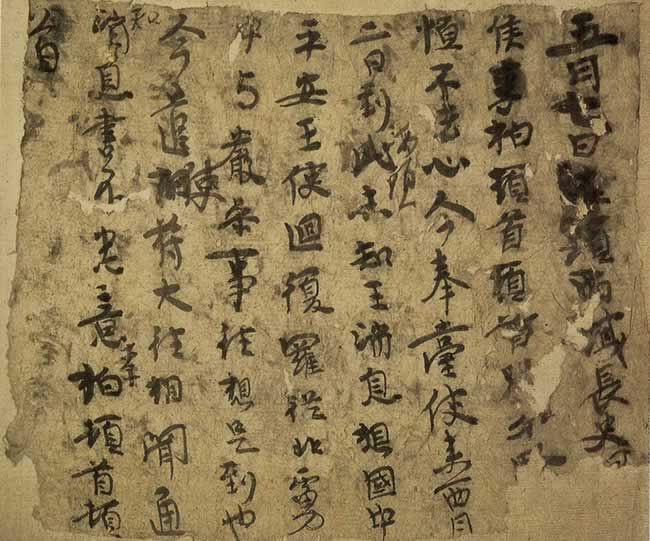 五月七日 西域長史
侯李柏頓首頓首
恒不去心今奉臺使來西月
二日到此海頭未知王消息想國中
平安王使迴復羅從北虜
中与嚴參事往想是到也
今遣使苻大往相聞通
知消息書不悉意李柏頓首頓
首